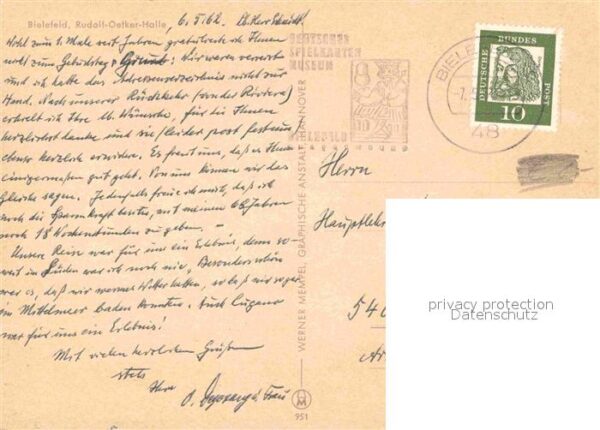 Bielefeld, Rudolf-Oetker-Halle
6.5.62. Lb. Herr
Wohl zum 1. Male seit Jahren gratulierte ich Ihnen
nicht zum Geburtstag. Grund: Wir waren verreist
und ich hatte das Adressenverzeichnis nicht zur
Hand. Nach unserer Rückkehr (von der Riviera)
erhielt ich Ihre lb. Wünsche, für die Ihnen
herzlichst danke und sie (leider post festum)
ebenso herzlich erwidere. Es freut uns, daß es Ihnen
einigermaßen gut geht. Von uns können wir das
Gleiche sagen. Jedenfalls freue ich mich, daß ich
noch die Spannkraft besitze, mit meinen Jahren
noch 18 Wochenstunden zu geben. –
Unsere Reise war für uns ein Erlebnis, denn so-
weit im Süden war ich noch nie. Besonders schön
war es, daß wir warmes Wetter hatten, so daß wir sogar
im Mittelmeer baden konnten. Auch Lugano
war für uns ein Erlebnis!
Mit vielen herzlichen Grüßen
stets
Ihr
u. Frau
DEUTSCHES
SPIELKARTEN
MUSEUM
BIELEFELD
48
DEUTSCHE BUNDESPOST
10
WERNER MEMPEL GRAPHISCHE ANSTALT HANNOVER
M
951
Herrn
Hauptlehr
540
privacy protection
Datenschutz